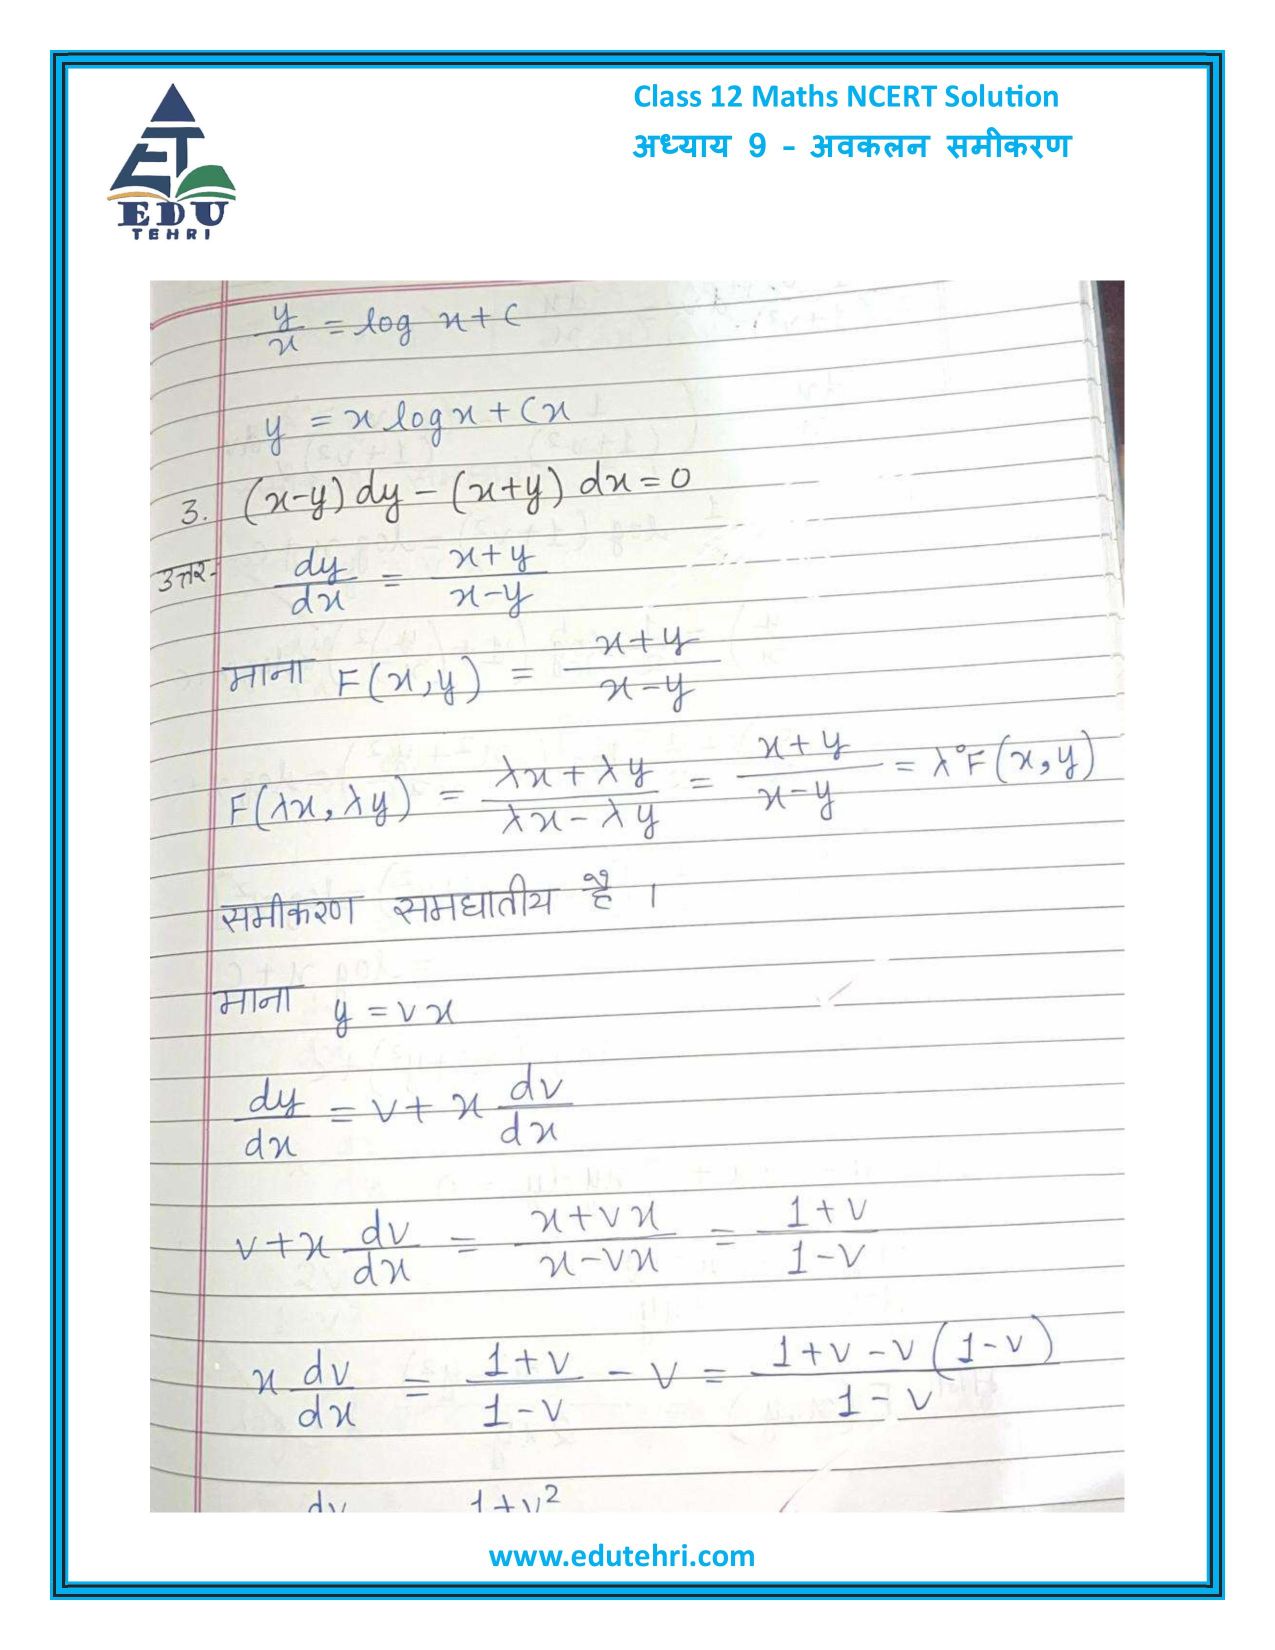 Class 12 Maths NCERT Solution
अध्याय 9 – अवकलन समीकरण
EDU
TEHRI
y/x = log x + C
y = x log x + Cx
3. (x-y) dy - (x+y) dx = 0
उत्तर- dy/dx = x+y/x-y
माना F(x,y) = x+y/x-y
F(λx, λy) = λx+λy/λx-λy = x+y/x-y = λ°F(x,y)
समीकरण समघातीय है ।
माना y = vx
dy/dx = v + x dv/dx
v + x dv/dx = x+vx/x-vx = 1+v/1-v
x dv/dx = 1+v/1-v - v = 1+v-v(1-v)/1-v
dv 1+v²
www.edutehri.com